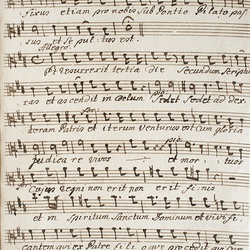 fixus etiam pro nobis sub Pontio Pilato pas
sus et sepultus est.
Allegro
Et resurrexit tertia die Secundum Scriptu
ras et ascendit in Coelum Sedet ad dex
teram Patris et iterum Venturus est cum gloria
judicare vivos et mortuos
Cujus Regni non erit non erit finis
et in Spiritum Sanctum Dominum et vivifi
cantem qui ex Patre filioque procedit qui cum